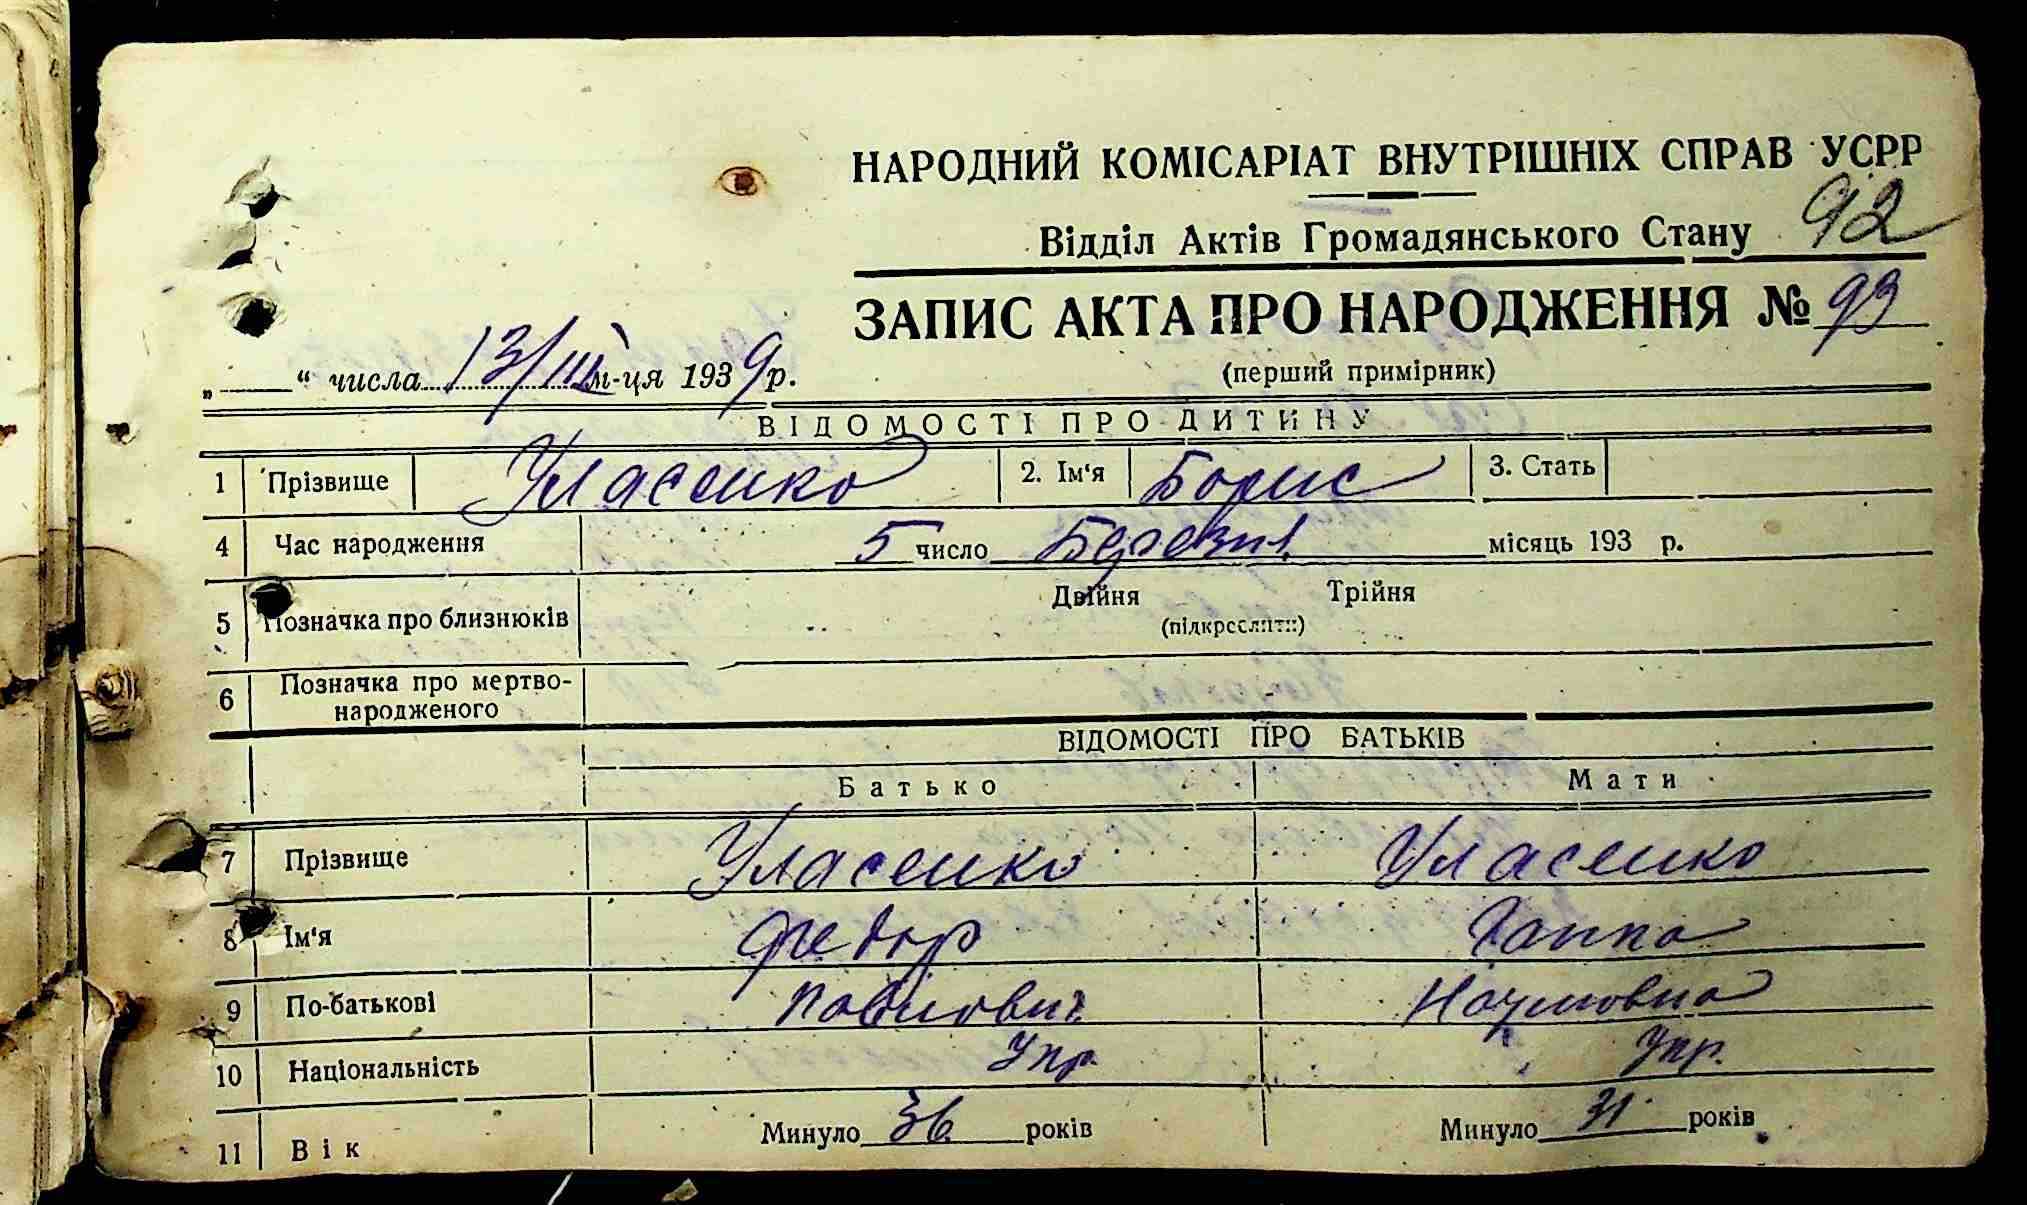 НАРОДНИЙ КОМІСАРІАТ ВНУТРІШНІХ СПРАВ УСРР
Відділ Актів Громадянського Стану 92
ЗАПИС АКТА ПРО НАРОДЖЕННЯ № 93
(перший примірник)
„ “ числа 13/III м-ця 1939 р.
ВІДОМОСТІ ПРО ДИТИНУ
1 Прізвище Уласенко 2. Ім‘я Борис 3. Стать
4 Час народження 5 число Березня місяць 193 р.
5 Позначка про близнюків Двійня Трійня
(підкреслити)
6 Позначка про мертво-
народженого
ВІДОМОСТІ ПРО БАТЬКІВ
Батько Мати
7 Прізвище Уласенко Уласенко
8 Ім‘я Федор Ганна
9 По-батькові Павлович Наумовна
10 Національність Укр. Укр.
11 Вік Минуло 36 років Минуло 31 років